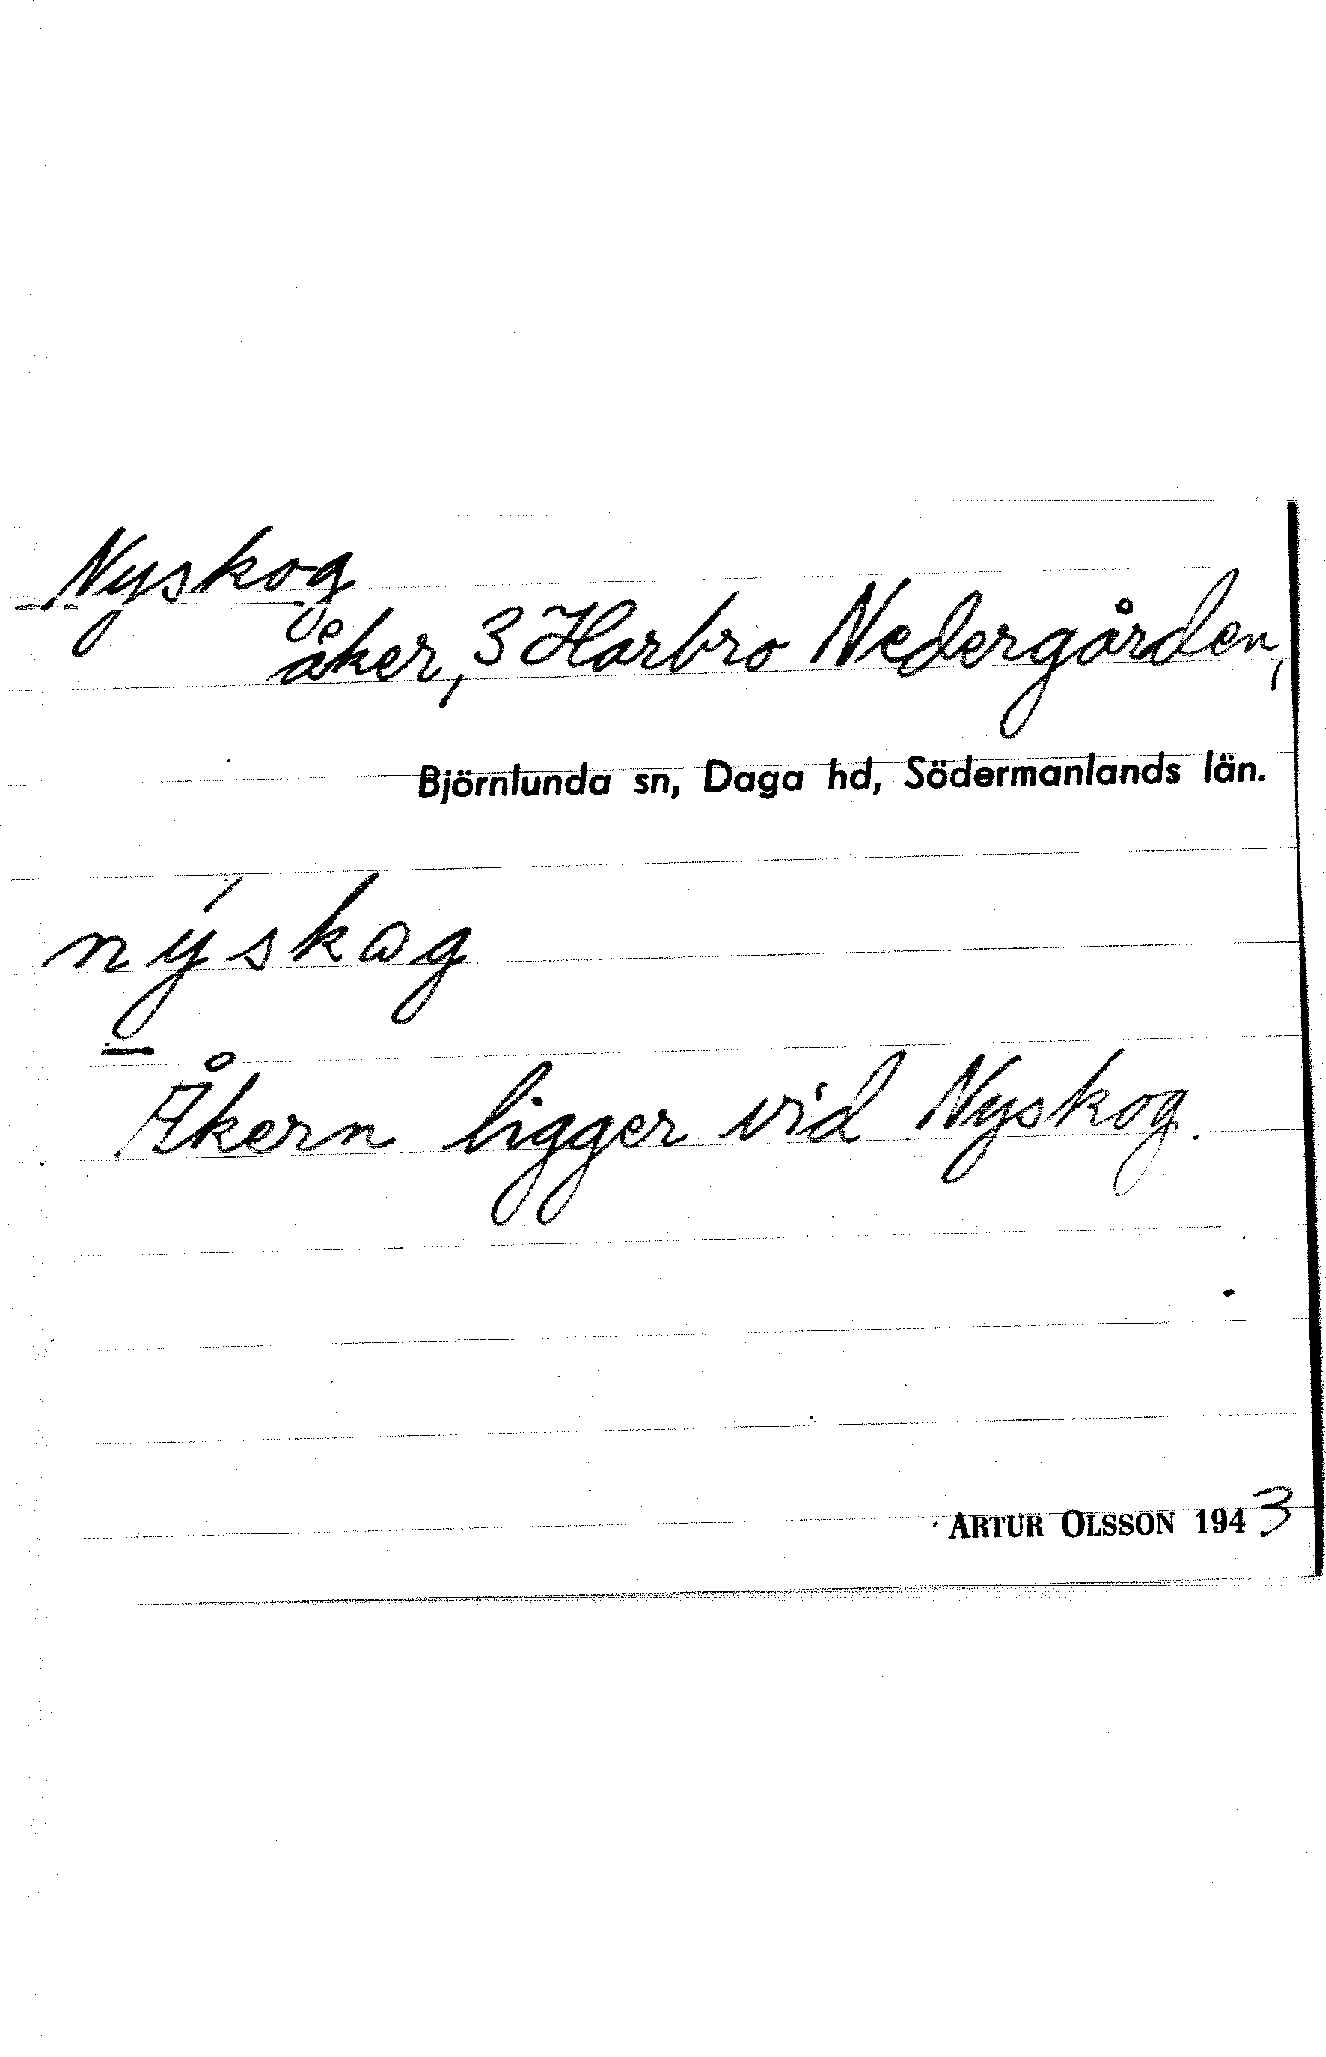 Nyskog
åker, 3 Harbro Nedergården,
Björnlunda sn, Daga hd, Södermanlands län.
nýskɷg
Åkern ligger vid Nyskog.
ARTUR OLSSON 1943